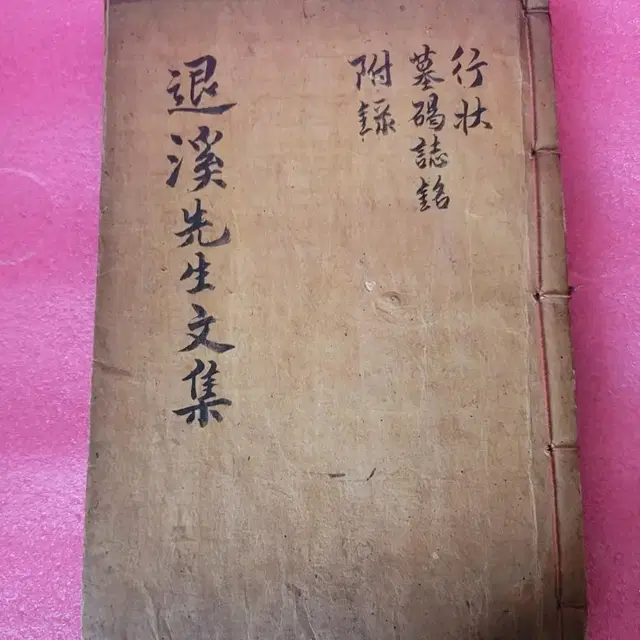 行状
墓碣誌銘
附錄
退溪先生文集